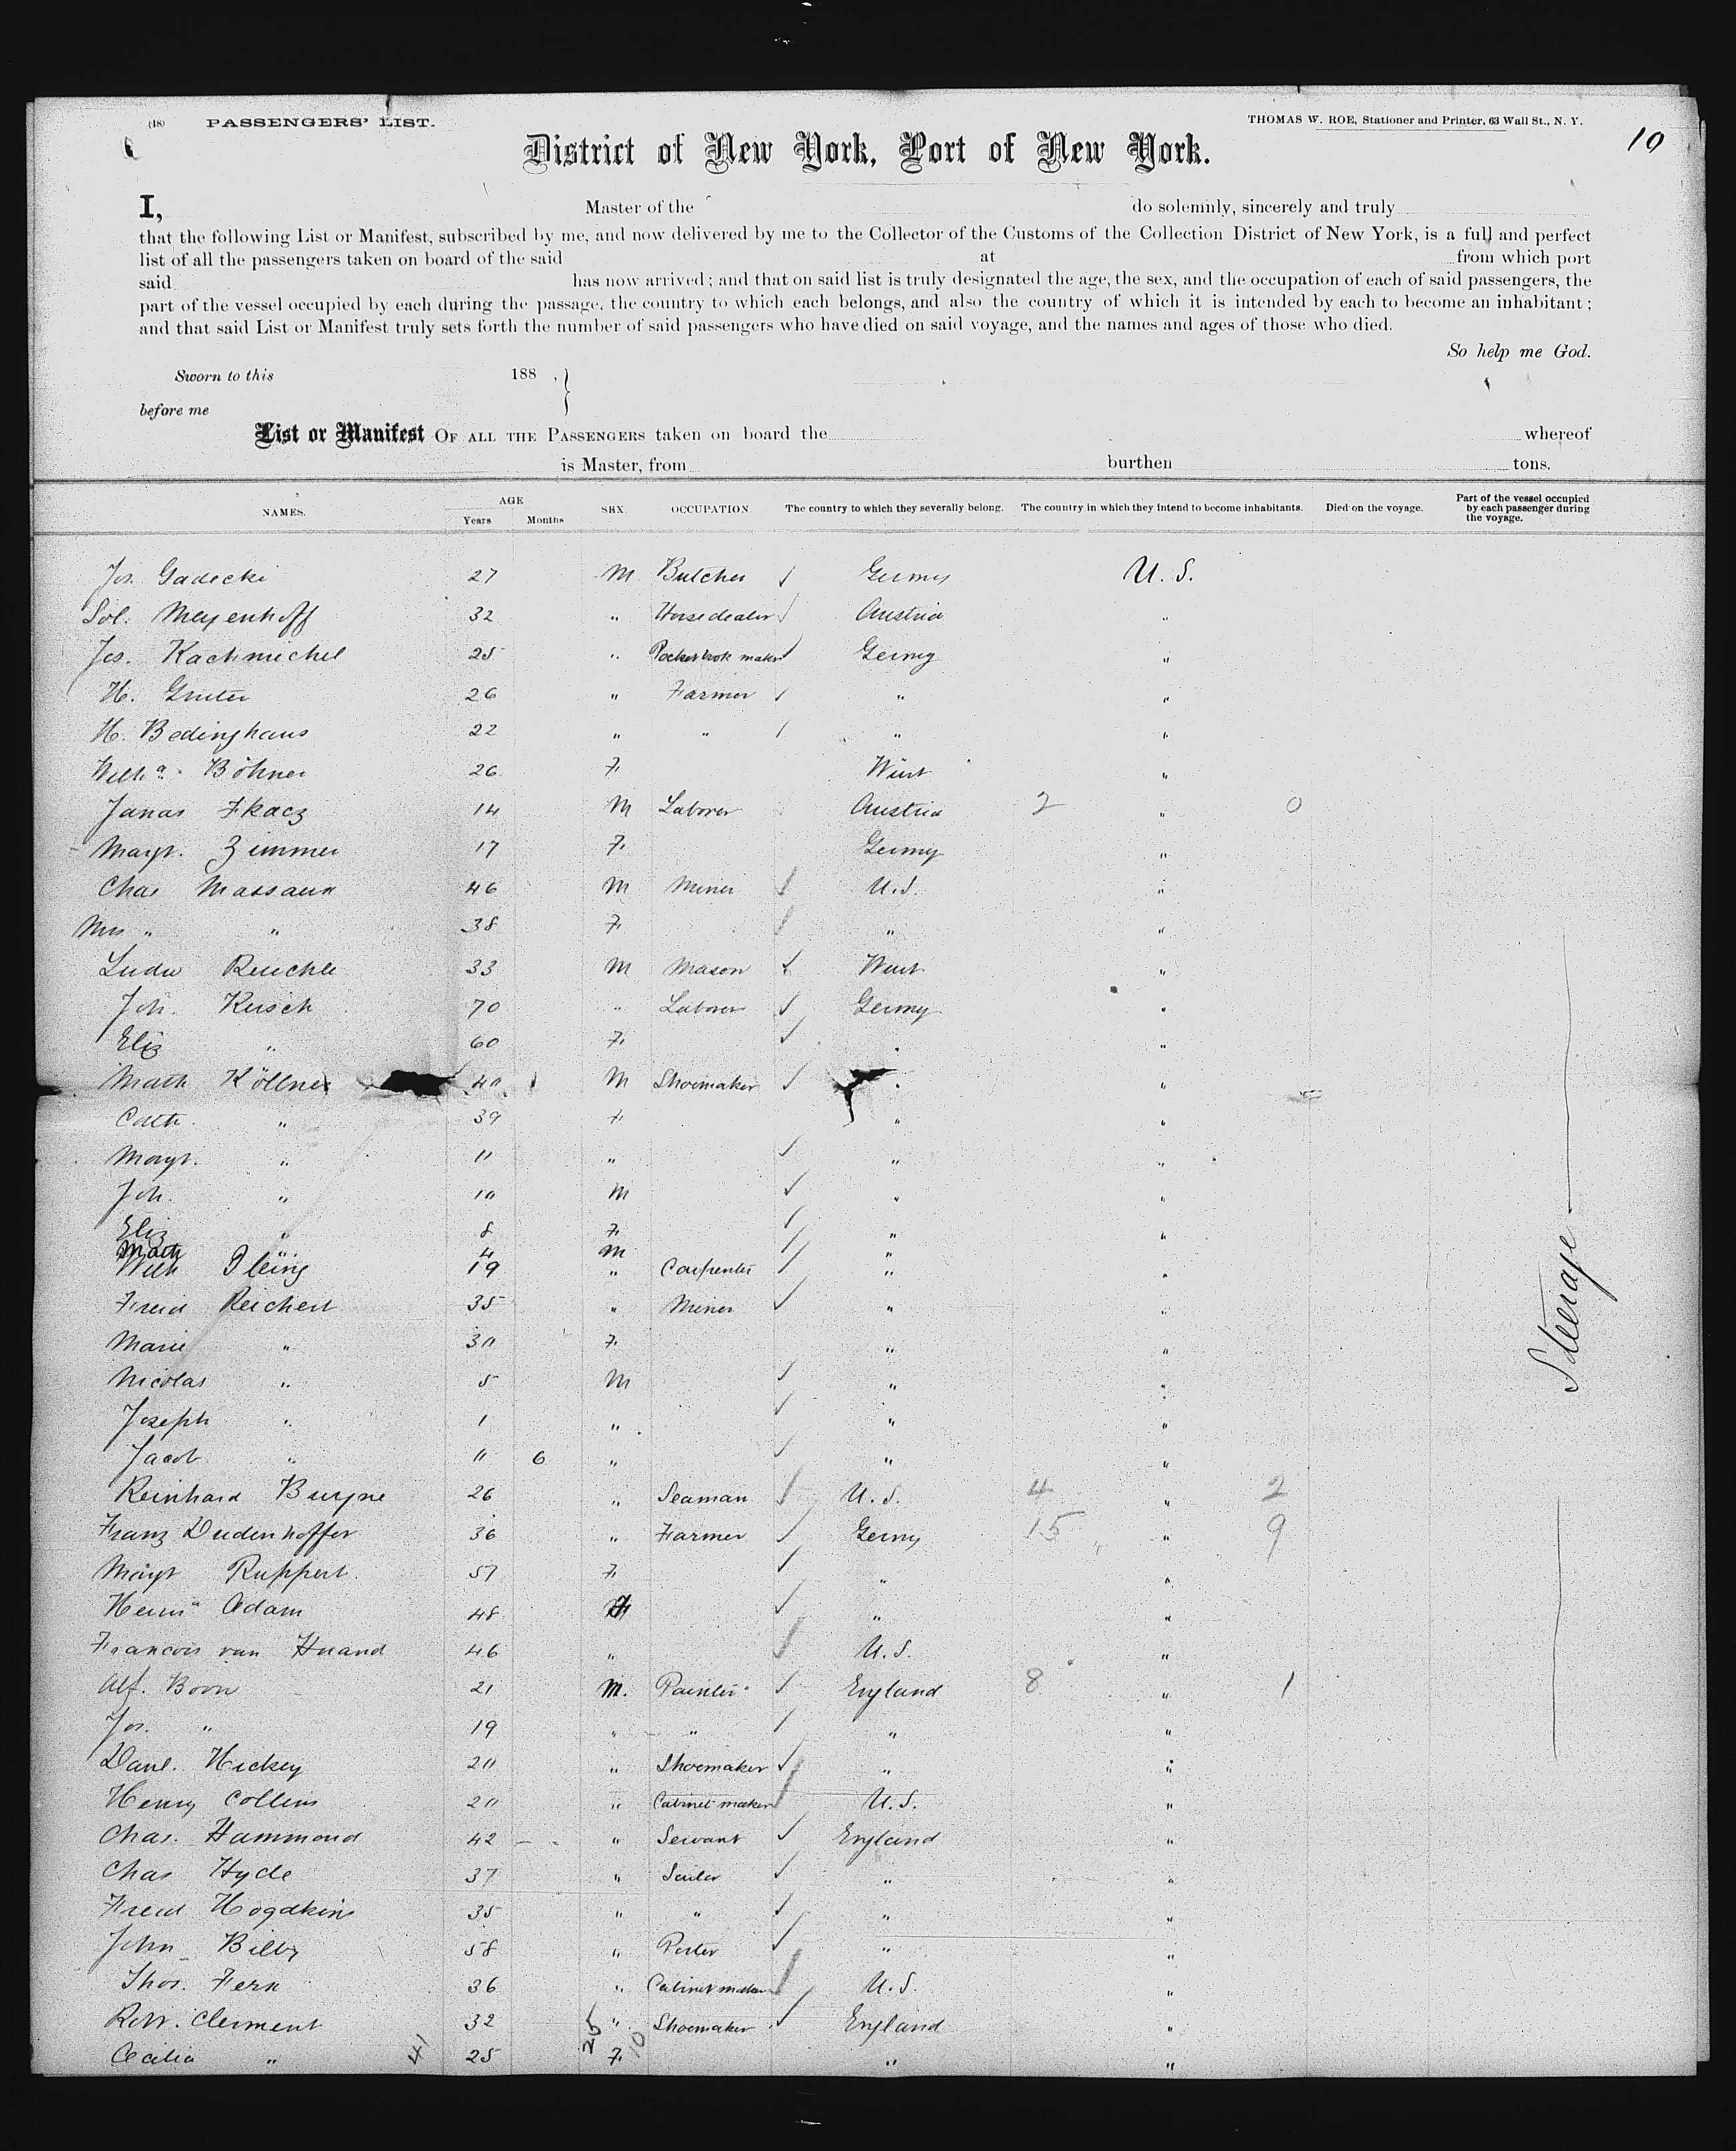 (48) PASSENGERS' LIST. THOMAS W. ROE, Stationer and Printer, 63 Wall St., N. Y. 10
District of New York, Port of New York.
I, Master of the do solemnly, sincerely and truly
that the following List or Manifest, subscribed by me, and now delivered by me to the Collector of the Customs of the Collection District of New York, is a full and perfect
list of all the passengers taken on board of the said at from which port
said has now arrived; and that on said list is truly designated the age, the sex, and the occupation of each of said passengers, the
part of the vessel occupied by each during the passage, the country to which each belongs, and also the country of which it is intended by each to become an inhabitant;
and that said List or Manifest truly sets forth the number of said passengers who have died on said voyage, and the names and ages of those who died.
So help me God.
Sworn to this 188 , }
before me
List or Manifest OF ALL THE PASSENGERS taken on board the whereof
is Master, from burthen tons.
NAMES. AGE Years Months SEX OCCUPATION The country to which they severally belong. The country in which they intend to become inhabitants. Died on the voyage. Part of the vessel occupied by each passenger during the voyage.
Jos. Gadecki 27 M Butcher Germy U. S.
Sol. Meyenhoff 32 " Horsedealer Austria "
Jos. Kachmichel 25 " Pocketbook maker Germy "
H. Gruter 26 " Farmer " "
H. Bedinghaus 22 " " " "
Wilha. Böhner 26 F. Würt "
Janas Fkacz 14 M Laborer Austria 2 " 0
Margt. Zimmer 17 F. Germy "
Chas Massaux 46 M Miner U.S. "
Mrs " " 38 F. " "
Ludw Reuchle 33 M Mason Würt "
Joh. Kersch 70 " Laborer Germy "
Eliz " 60 F. " "
Math Köllner 40 M Shoemaker " "
Cath. " 39 F " "
Margt. " 11 " " "
Joh. " 10 M " "
Eliz " 8 F. " "
Math " 4 M " "
Wilh Pleing 19 " Carpenter " "
Fried Reichert 35 " Miner " "
Marie " 30 F. " "
Nicolas " 5 M " "
Joseph " 1 " " "
Jacob " " 6 " " "
Reinhard Burgne 26 " Seaman U. S. 4 " 2
Franz Dudenhoffer 36 " Farmer Germy 15 " 9
Margt Ruppert. 57 F. " "
Hermª Adam 48 F " "
Francois van Huand 46 " U. S. "
Alf. Boon 21 M. Painter England 8 " 1
Jos. " 19 " " " "
Danl. Hickey 20 " Shoemaker " "
Henry Collins 20 " Cabinet maker U. S. "
Chas. Hammond 42 " Servant England "
Chas Hyde 37 " Sailor " "
Fred Hogdkins 35 " " " "
John Bilby 58 " Porter " "
Thos. Fern 36 " Cabinet maker U. S. "
Robt. Clement 32 " Shoemaker England "
Cecilia " 41 25 25 F. 10 " "
Steerage